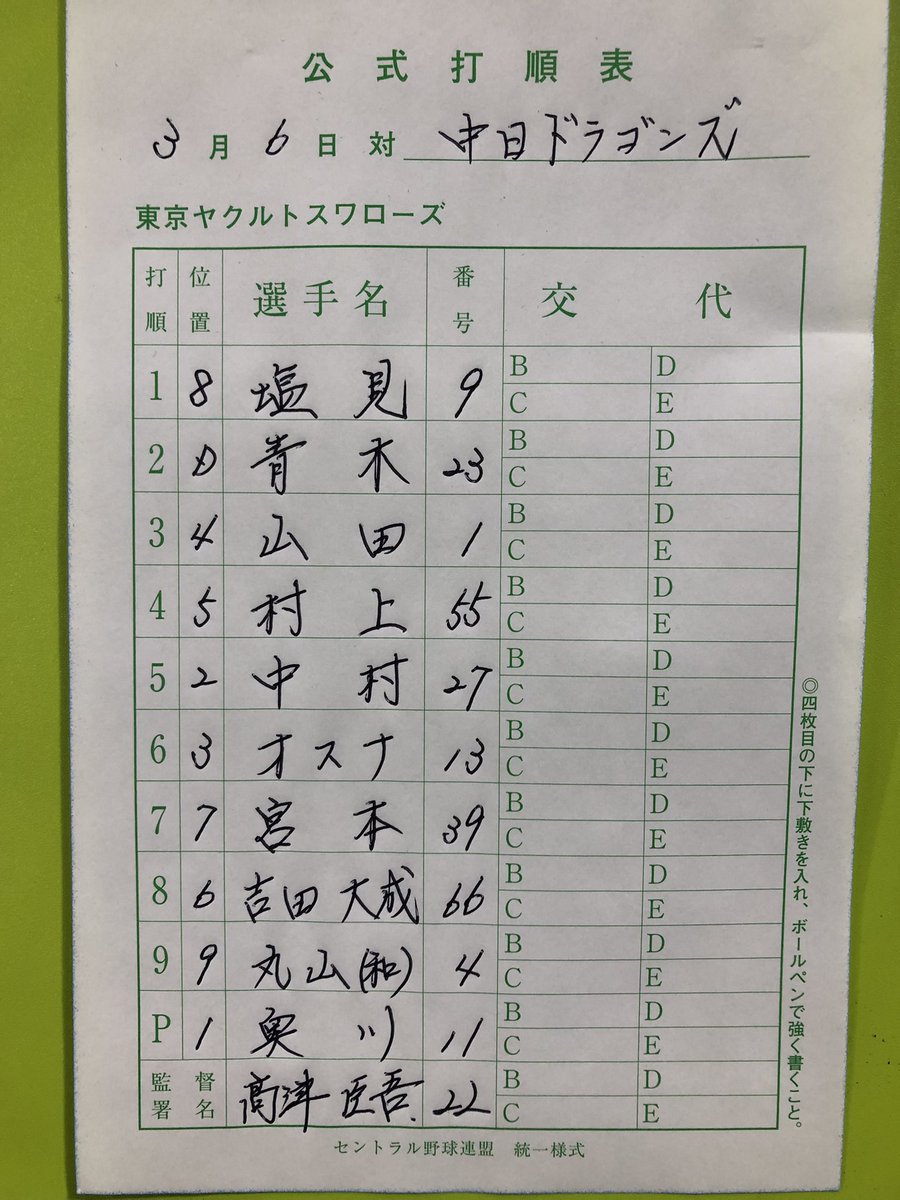 公式打順表
3月6日対 中日ドラゴンズ
東京ヤクルトスワローズ
打順 位置 選手名 番号 交代
1 8 塩見 9 B D
C E
2 D 青木 23 B D
C E
3 4 山田 1 B D
C E
4 5 村上 55 B D
C E
5 2 中村 27 B D
C E
6 3 オスナ 13 B D
C E
7 7 宮本 39 B D
C E
8 6 吉田大成 66 B D
C E
9 9 丸山(和) 4 B D
C E
P 1 奥川 11 B D
C E
監督署名 高津臣吾 22 B D
C E
セントラル野球連盟 統一様式
◎四枚目の下に下敷きを入れ、ボールペンで強く書くこと。